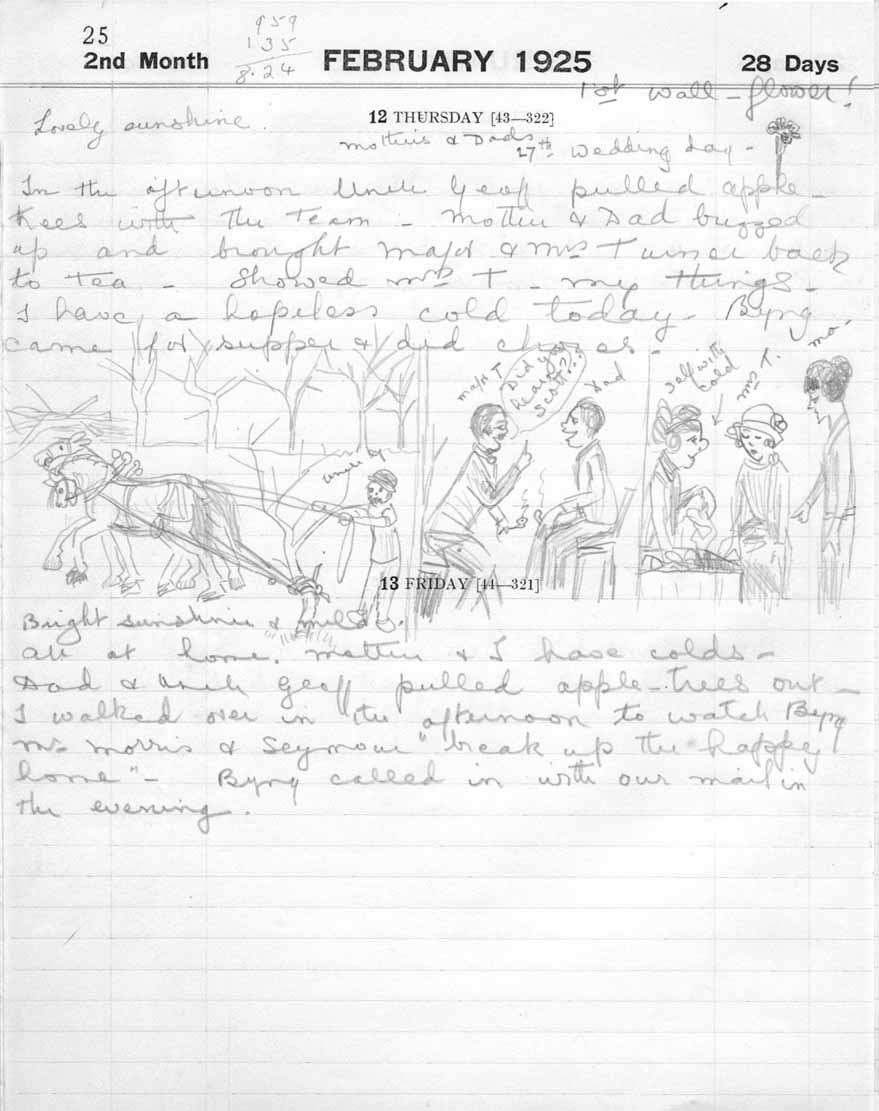 25
959
135
8.24
2nd Month FEBRUARY 1925 28 Days
1st wall-flower!
12 THURSDAY [43—322]
Lovely sunshine.
Mother's & Dads
27th Wedding day -
In the afternoon Uncle Geoff pulled apple-
trees with the team - Mother & Dad buzzed
up and brought Major & Mrs Turner back
to tea - Showed Mrs T - my things -
I have a hopeless cold today - Byng
came for supper & did chores -
Major T
Did you
hear
Scott
Dad
self with
cold
Mrs T.
Mo-
Uncle G
13 FRIDAY [44—321]
Bright sunshine & mild.
All at home. Mother & I have colds -
Dad & Uncle Geoff pulled apple-trees out -
I walked over in the afternoon to watch Byng
Mr Morris & Seymour "break up the happy
home" - Byng called in with our mail in
the evening.